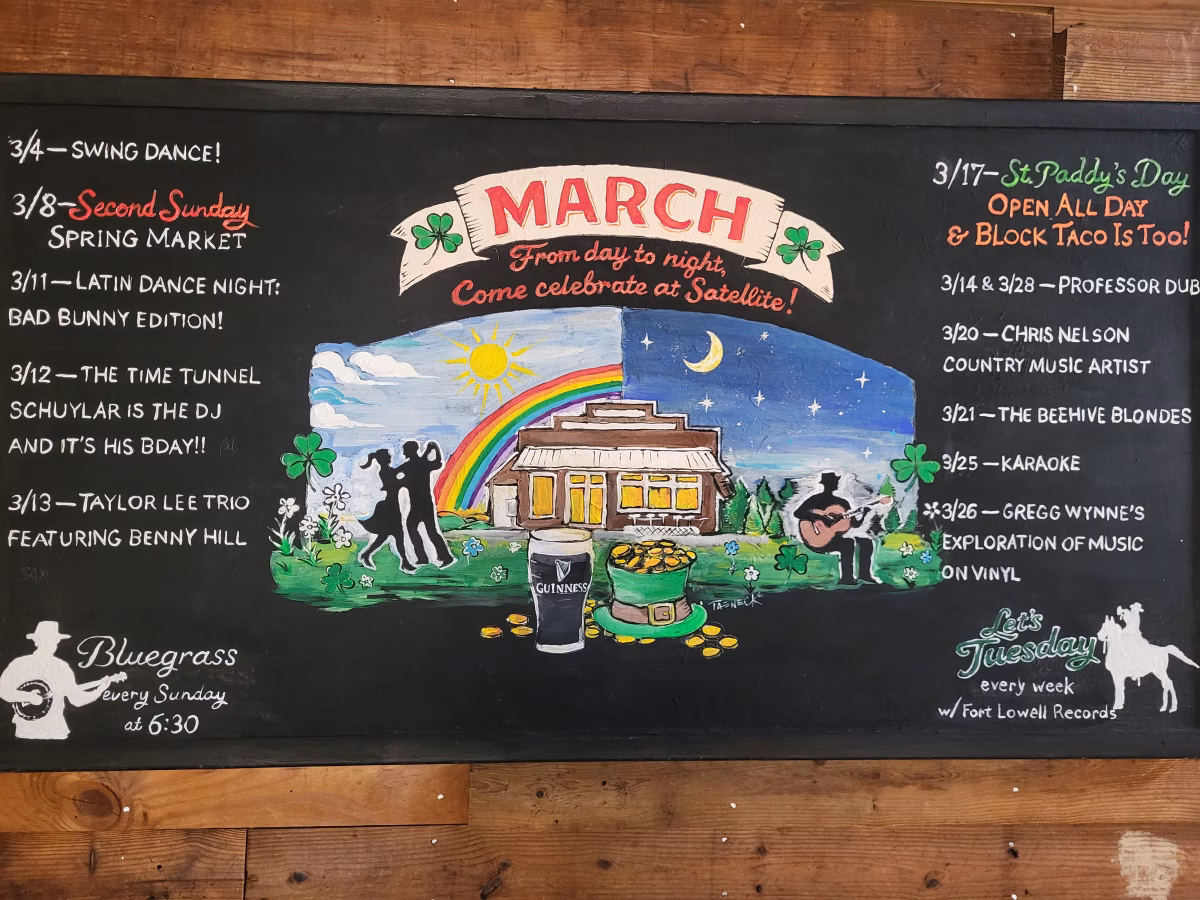 3/4 — SWING DANCE!
3/8 – Second Sunday
SPRING MARKET
3/11 — LATIN DANCE NIGHT:
BAD BUNNY EDITION!
3/12 — THE TIME TUNNEL
SCHUYLAR IS THE DJ
AND IT'S HIS BDAY!!
3/13 — TAYLOR LEE TRIO
FEATURING BENNY HILL
Bluegrass
every Sunday
at 6:30
MARCH
From day to night,
Come celebrate at Satellite!
GUINNESS
3/17 – St. Paddy's Day
OPEN ALL DAY
& BLOCK TACO IS TOO!
3/14 & 3/28 — PROFESSOR DUB
3/20 — CHRIS NELSON
COUNTRY MUSIC ARTIST
3/21 — THE BEEHIVE BLONDES
3/25 — KARAOKE
*3/26 — GREGG WYNNE'S
EXPLORATION OF MUSIC
ON VINYL
Let's
Tuesday
every week
w/ Fort Lowell Records